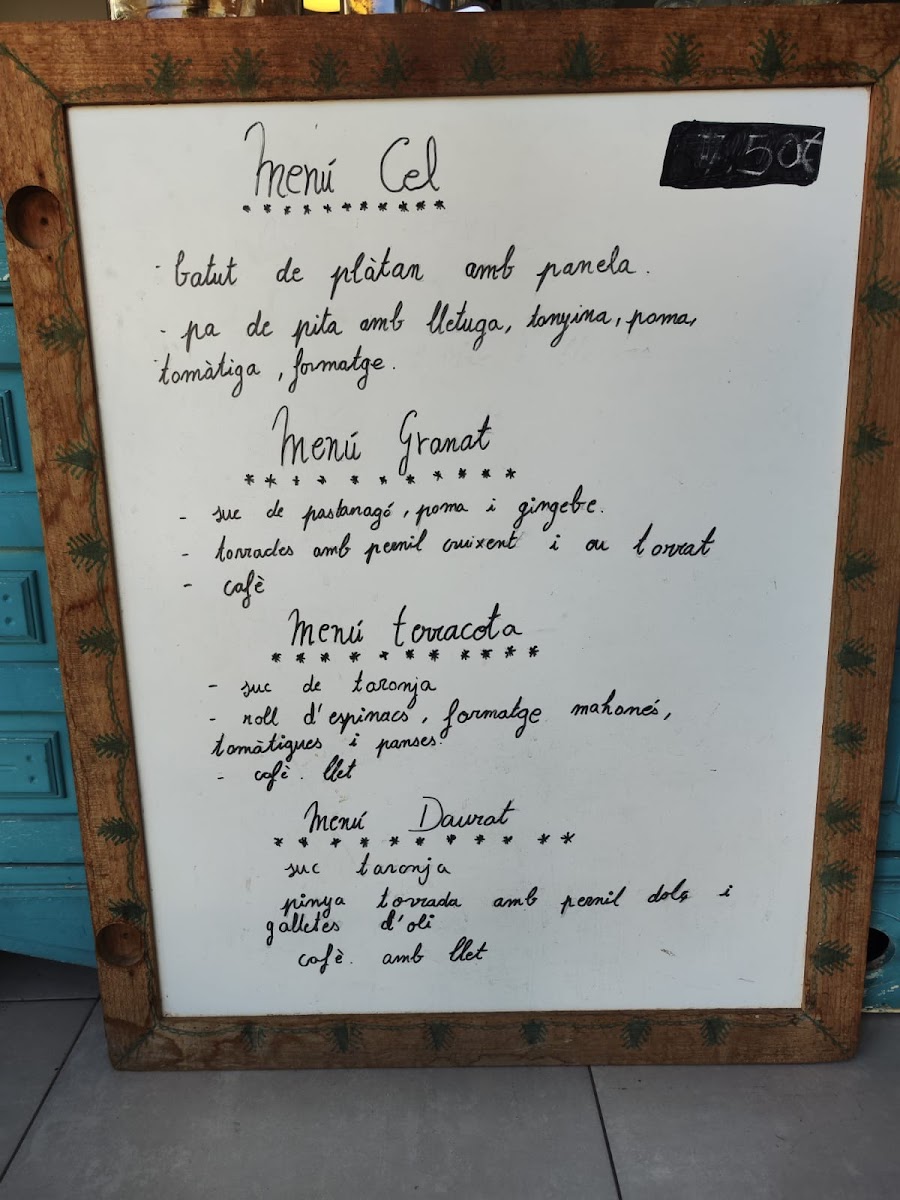 Menú Cel
7,50€
- batut de plàtan amb panela.
- pa de pita amb lletuga, tonyina, poma,
tomàtiga, formatge.
Menú Granat
- suc de pastanagó, poma i gingebe.
- torrades amb pernil cruixent i ou torrat
- cafè
Menú terracota
- suc de taronja
- roll d'espinacs, formatge mahonés,
tomàtigues i panses.
- cafè. llet
Menú Daurat
suc taronja
pinya torrada amb pernil dolç i
galletes d'oli
cafè. amb llet